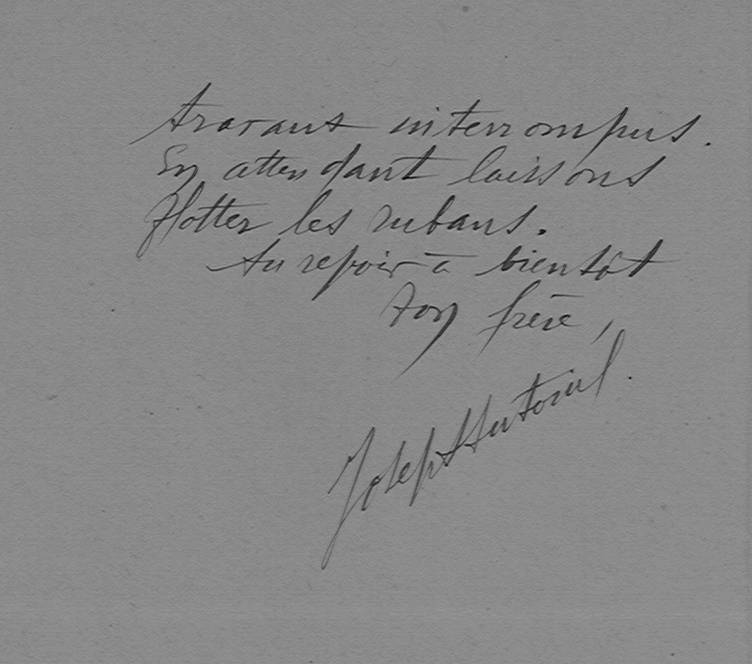 travaux interrompus.
En attendant laissons
flotter les rubans.
Au revoir à bientôt
Ton frère,
Joseph